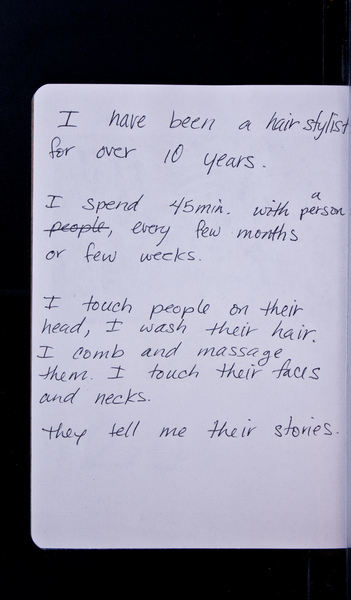 I have been a hair stylist
for over 10 years.
I spend 45min. with a person
people, every few months
or few weeks.
I touch people on their
head, I wash their hair.
I comb and massage
them. I touch their faces
and necks.
they tell me their stories.